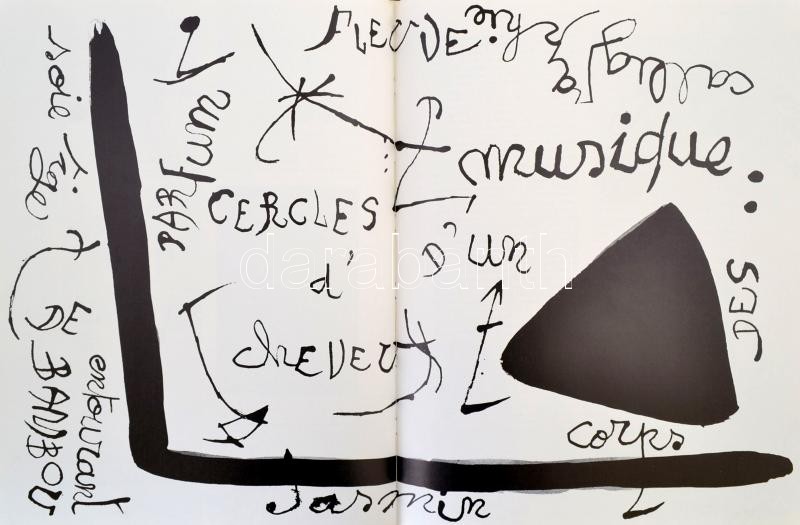 FLEUVE
calligraphie
musique
PARFUM
CERCLES
d'
d'un
CHEVEUX
DES
corps
Jasmin
soie tige
entourant
BAMBOU
darabanth.com